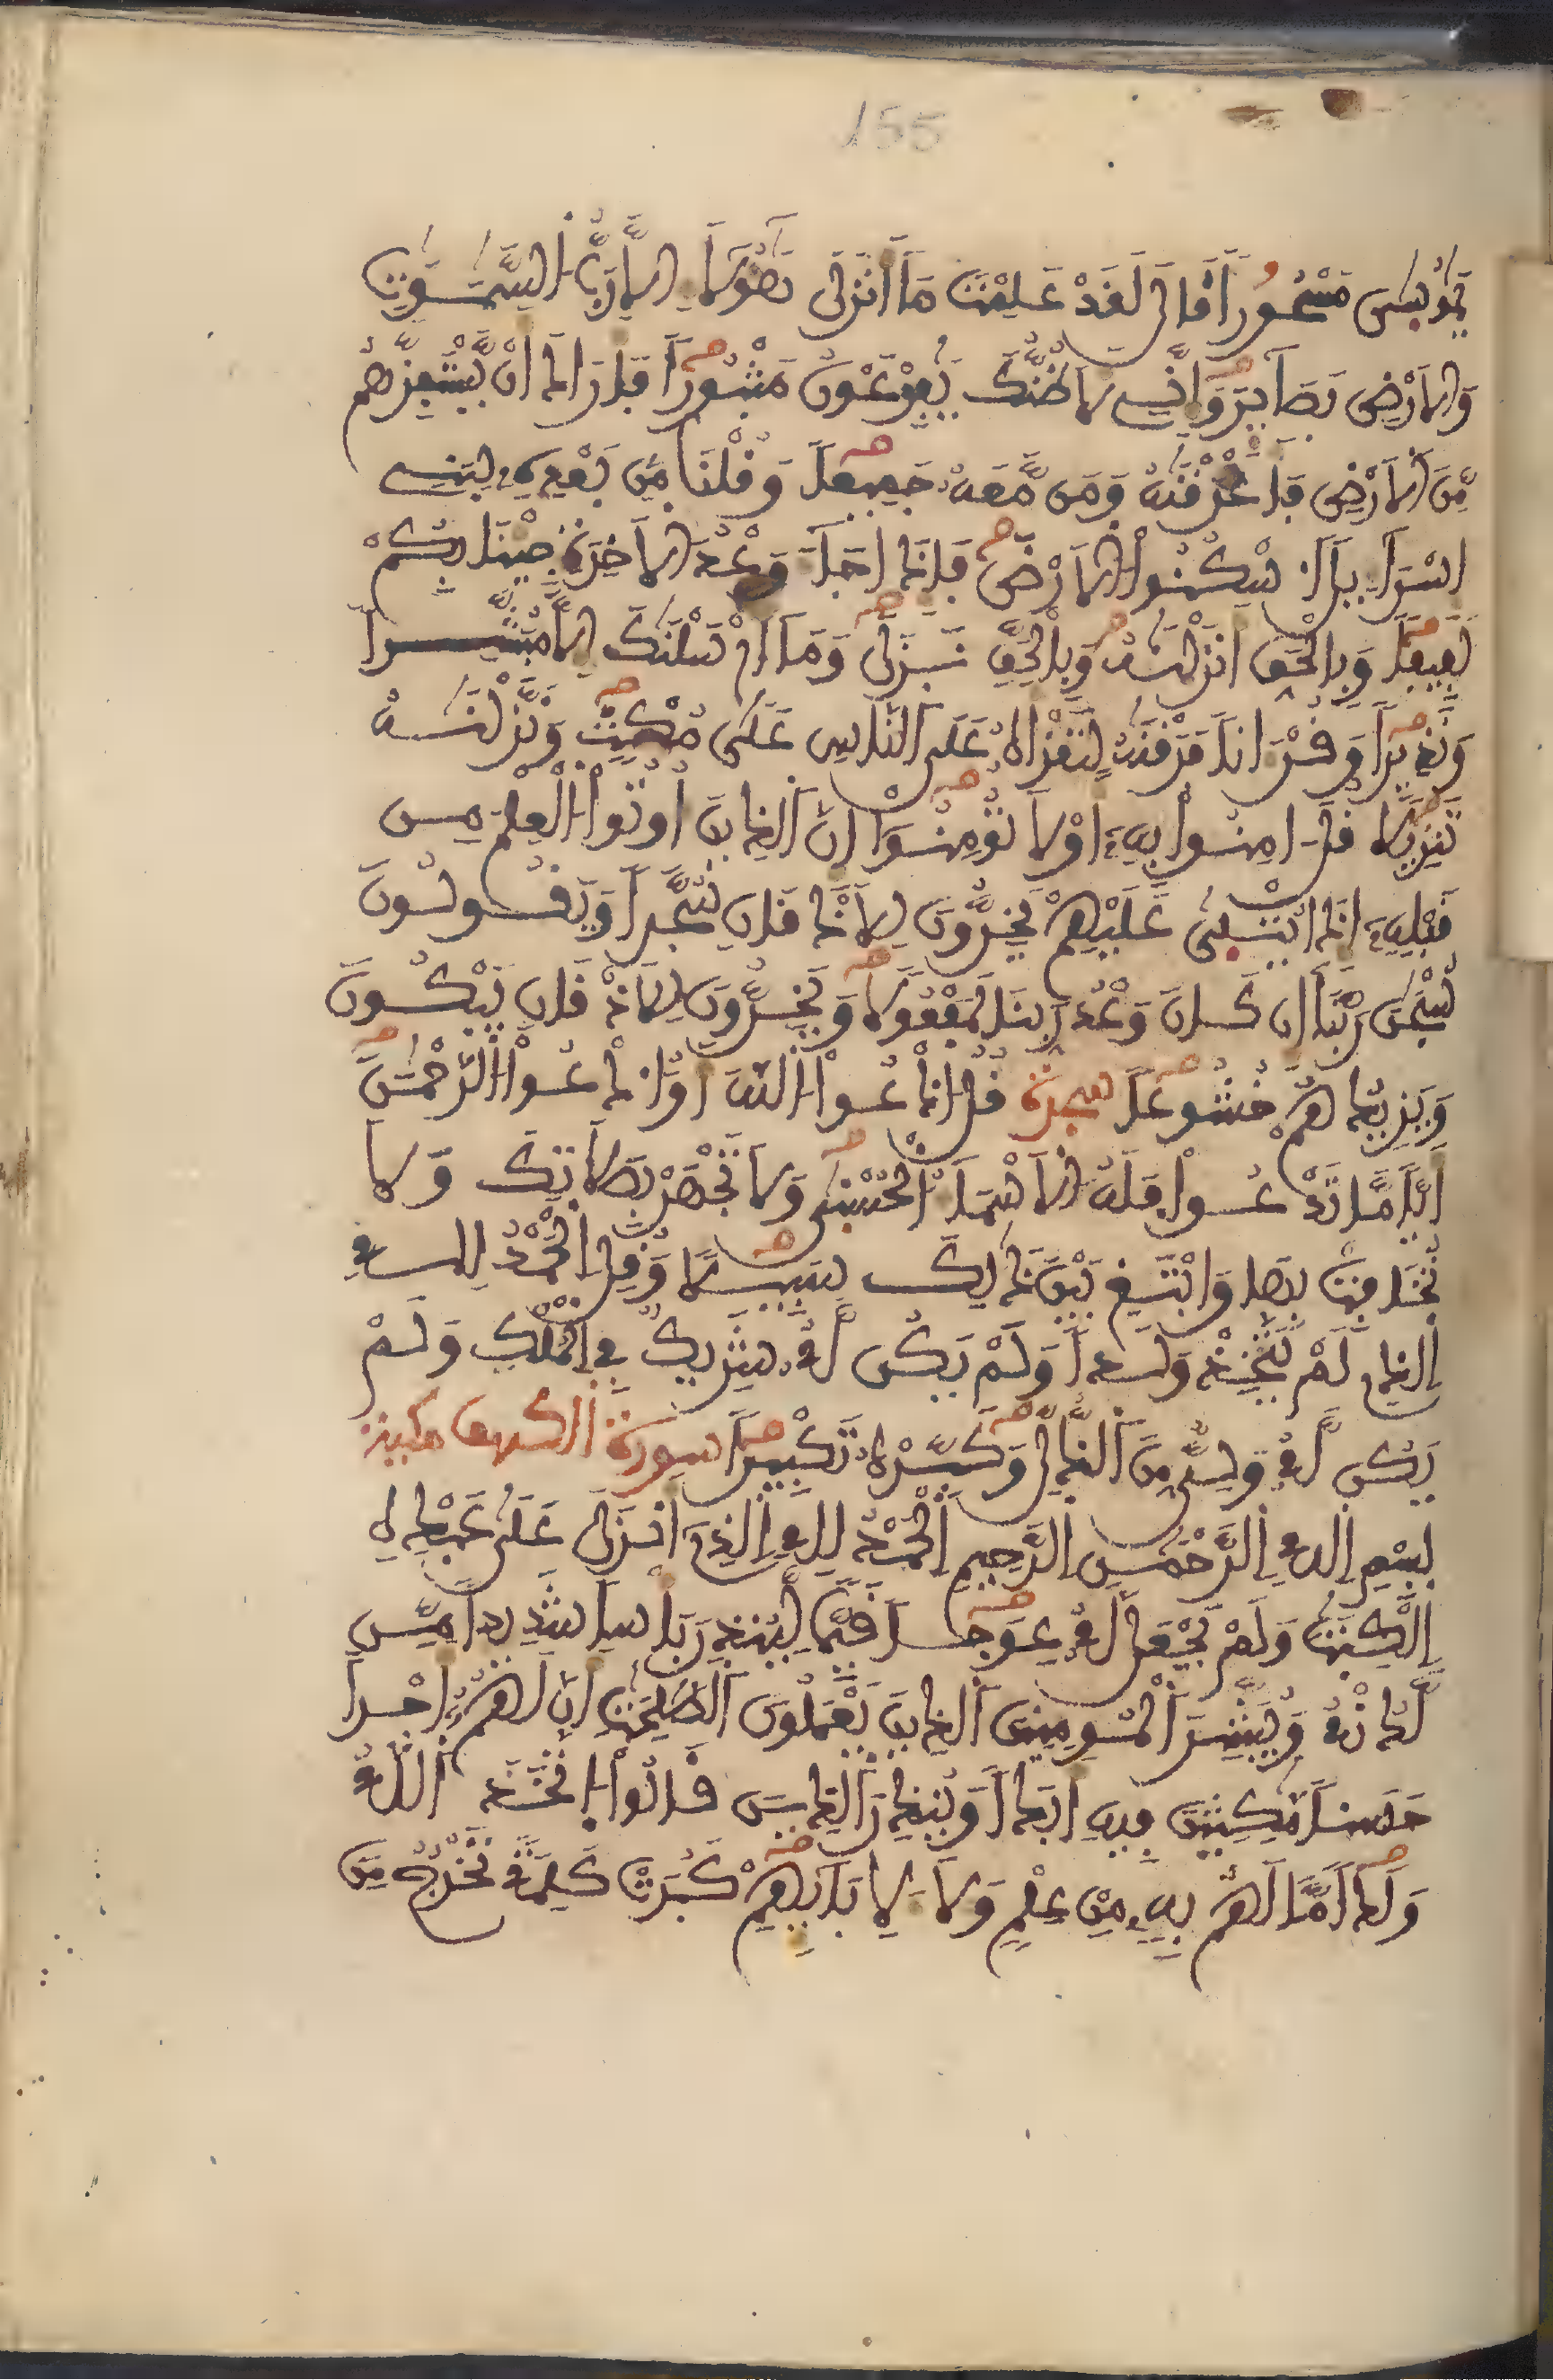 155
يَٰمُوسَىٰ مَسْحُوراً قَالَ لَقَدْ عَلِمْتَ مَا أَنزَلَ هَٰؤُلَاءِ الَّا رَبُّ السَّمَٰوَٰتِ
وَالَارْضِ بَصَآئِرَ وَإِنِّے لَأَظُنُّكَ يَٰفِرْعَوْنُ مَثْبُوراً فَأَرَادَ أَنْ يَّسْتَفِزَّهُم
مِّنَ الَارْضِ فَأَغْرَقْنَٰهُ وَمَن مَّعَهُ جَمِيعاً وَقُلْنَا مِن بَعْدِهِ لِبَنِے
إِسْرَآءِيلَ اسْكُنُوا الَارْضَ فَإِذَا جَآءَ وَعْدُ الَاخِرَةِ جِئْنَا بِكُمْ
لَفِيفاً وَبِالْحَقِّ أَنزَلْنَٰهُ وَبِالْحَقِّ نَزَلَ وَمَا أَرْسَلْنَٰكَ إِلَّا مُبَشِّراً
وَنَذِيراً وَقُرْءَاناً فَرَقْنَٰهُ لِتَقْرَأَهُ عَلَى النَّاسِ عَلَىٰ مُكْثٍ وَنَزَّلْنَٰهُ
تَنزِيلاً قُلَ امِنُوا بِهِ أَوْ لَا تُومِنُوا إِنَّ الذِينَ أُوتُوا الْعِلْمَ مِن
قَبْلِهِ إِذَا يُتْلَىٰ عَلَيْهِمْ يَخِرُّونَ لِلَاذْقَانِ سُجَّداً وَيَقُولُونَ
سُبْحَٰنَ رَبِّنَا إِن كَانَ وَعْدُ رَبِّنَا لَمَفْعُولاً وَيَخِرُّونَ لِلَاذْقَانِ يَبْكُونَ
وَيَزِيدُهُمْ خُشُوعاً سجدة قُلُ ادْعُوا اللَّهَ أَوُ ادْعُوا الرَّحْمَٰنَ
أَيّاً مَّا تَدْعُوا فَلَهُ الَاسْمَآءُ الْحُسْنَىٰ وَلَا تَجْهَرْ بِصَلَاتِكَ وَلَا
تُخَافِتْ بِهَا وَابْتَغِ بَيْنَ ذَٰلِكَ سَبِيلاً وَقُلِ الْحَمْدُ لِلهِ
الذِے لَمْ يَتَّخِذْ وَلَداً وَلَمْ يَكُن لَّهُ شَرِيكٌ فِے الْمُلْكِ وَلَمْ
يَكُن لَّهُ وَلِيٌّ مِّنَ الذُّلِّ وَكَبِّرْهُ تَكْبِيراً سورة الكهف مكية
بِسْمِ اللهِ الرَّحْمَٰنِ الرَّحِيمِ الْحَمْدُ لِلهِ الذِے أَنزَلَ عَلَىٰ عَبْدِهِ
الْكِتَٰبَ وَلَمْ يَجْعَل لَّهُ عِوَجاً قَيِّماً لِّيُنذِرَ بَأْساً شَدِيداً مِّن
لَّدُنْهُ وَيُبَشِّرَ الْمُومِنِينَ الذِينَ يَعْمَلُونَ الصَّٰلِحَٰتِ أَنَّ لَهُمُ أَجْراً
حَسَناً مَّٰكِثِينَ فِيهِ أَبَداً وَيُنذِرَ الذِينَ قَالُوا اتَّخَذَ اللهُ
وَلَداً مَّا لَهُم بِهِ مِنْ عِلْمٍ وَلَا لِأَبَآئِهِمْ كَبُرَتْ كَلِمَةً تَخْرُجُ مِنَ